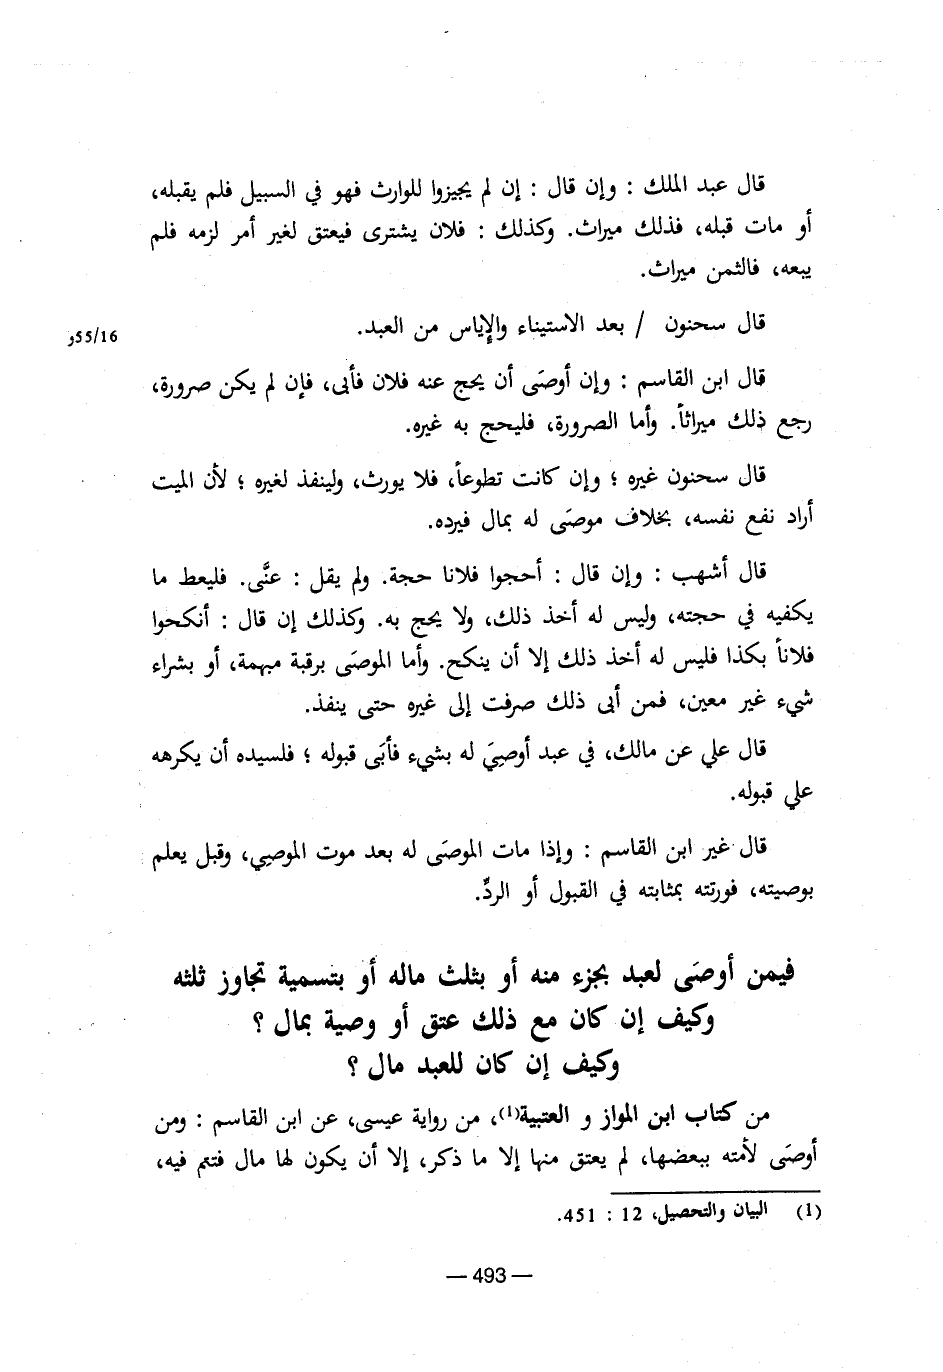 قال عبد الملك : وإن قال : إن لم يجيزوا للوارث فهو في السبيل فلم يقبله،
أو مات قبله، فذلك ميراث. وكذلك : فلان يشترى فيعتق لغير أمر لزمه فلم
يبعه، فالثمن ميراث.
قال سحنون / بعد الاستيناء والإياس من العبد.
55/16و
قال ابن القاسم : وإن أوصَى أن يحج عنه فلان فأبى، فإن لم يكن صرورة،
رجع ذلك ميراثاً. وأما الصرورة، فليحج به غيره.
قال سحنون غيره ؛ وإن كانت تطوعاً، فلا يورث، ولينفذ لغيره ؛ لأن الميت
أراد نفع نفسه، بخلاف موصَى له بمال فيرده.
قال أشهب : وإن قال : أحجوا فلانا حجة. ولم يقل : عنَّى. فليعط ما
يكفيه في حجته، وليس له أخذ ذلك، ولا يحج به. وكذلك إن قال : أنكحوا
فلاناً بكذا فليس له أخذ ذلك إلا أن ينكح. وأما الموصَى برقبة مبهمة، أو بشراء
شيء غير معين، فمن أبى ذلك صرفت إلى غيره حتى ينفذ.
قال علي عن مالك، في عبد أوصِيَ له بشيء فأبَى قبوله ؛ فلسيده أن يكرهه
علي قبوله.
قال غير ابن القاسم : وإذا مات الموصَى له بعد موت الموصِي، وقبل يعلم
بوصيته، فورثته بمثابته في القبول أو الردِّ.
فيمن أوصَى لعبد بجزء منه أو بثلث ماله أو بتسمية تجاوز ثلثه
وكيف إن كان مع ذلك عتق أو وصية بمال ؟
وكيف إن كان للعبد مال ؟
من كتاب ابن المواز و العتبية(1)، من رواية عيسى، عن ابن القاسم : ومن
أوصَى لأمته ببعضها، لم يعتق منها إلا ما ذكر، إلا أن يكون لها مال فتتم فيه،
(1) البيان والتحصيل، 12 : 451.
— 493 —